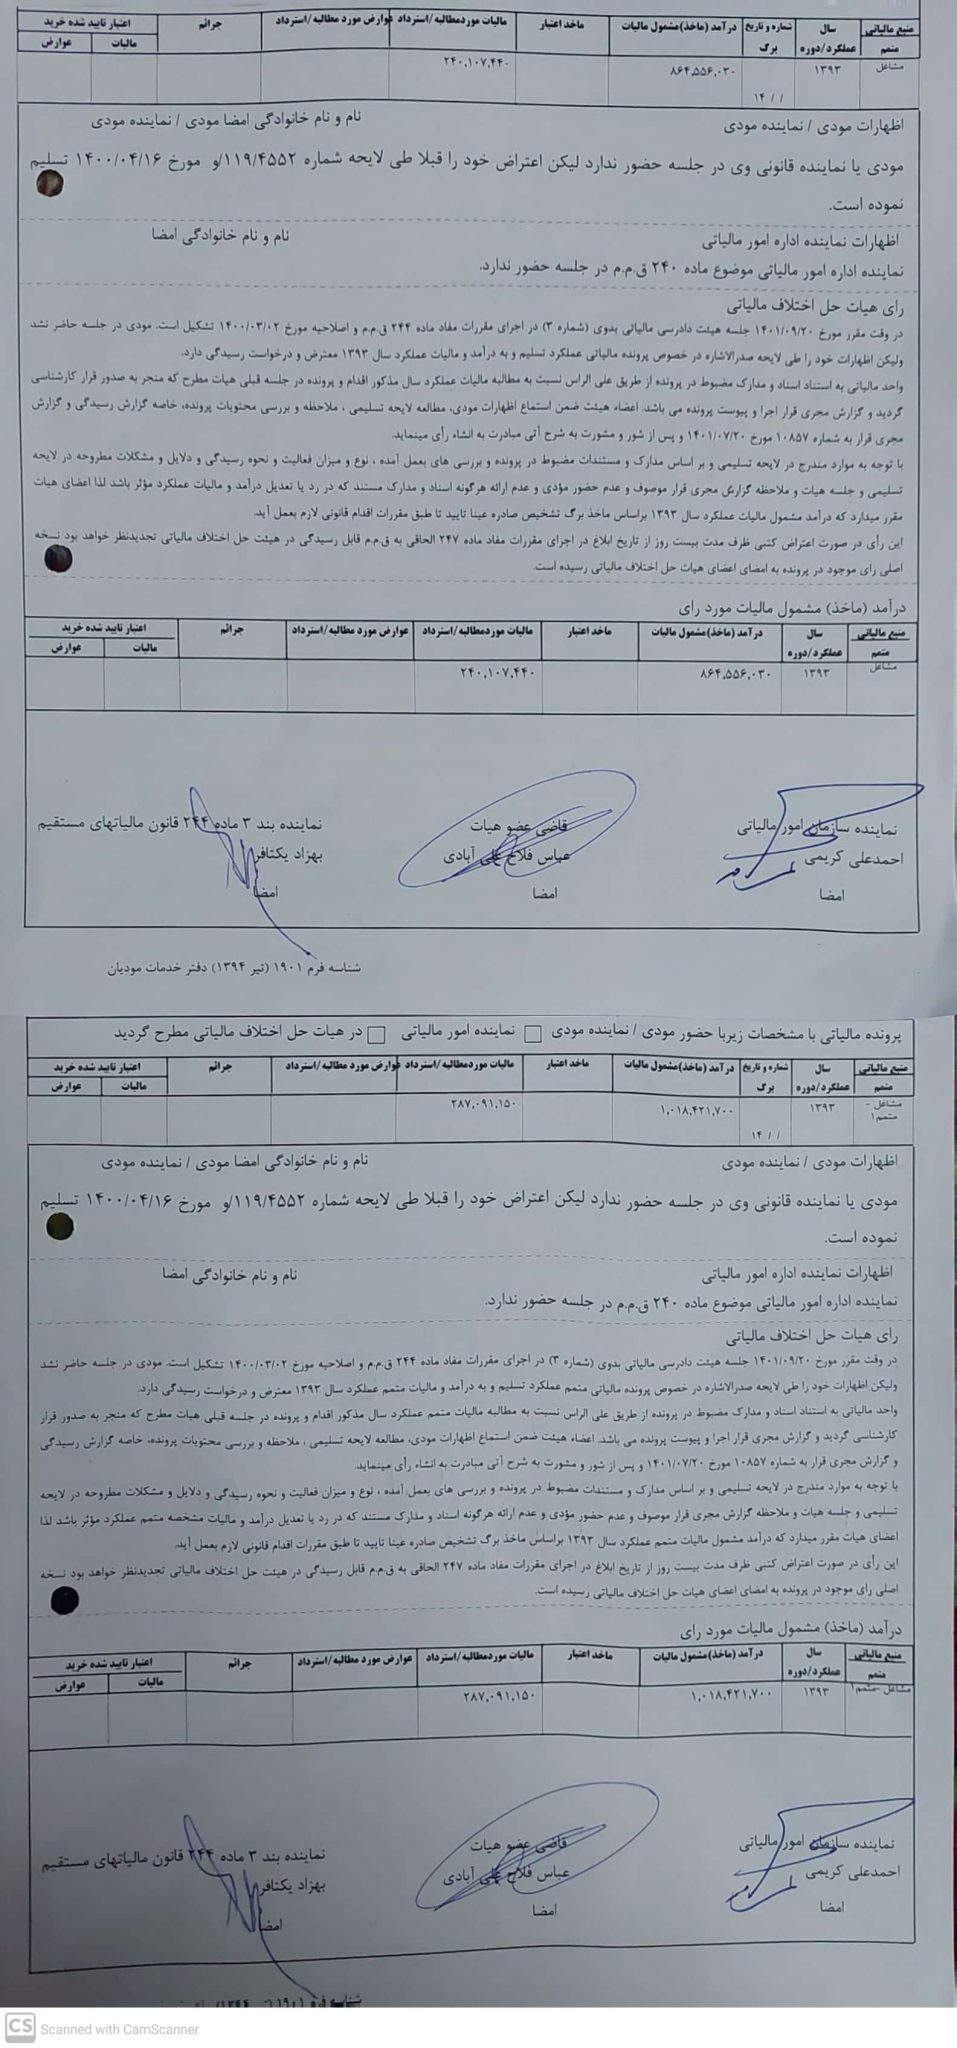 منبع مالیاتی متمم | سال عملکرد/دوره | شماره و تاریخ برگ | درآمد (ماخذ)مشمول مالیات | ماخذ اعتبار | مالیات موردمطالبه/استرداد | عوارض مورد مطالبه/استرداد | جرائم | اعتبار تایید شده خرید
مالیات | عوارض
مشاغل | ۱۳۹۳ | ۱۴ / / | ۸۶۴,۵۵۶,۰۳۰ | ۲۴۰,۱۰۷,۴۴۰
اظهارات مودی / نماینده مودی نام و نام خانوادگی امضا مودی / نماینده مودی
مودی یا نماینده قانونی وی در جلسه حضور ندارد لیکن اعتراض خود را قبلا طی لایحه شماره ۱۱۹/۴۵۵۲/و مورخ ۱۴۰۰/۰۴/۱۶ تسلیم
نموده است.
اظهارات نماینده اداره امور مالیاتی نام و نام خانوادگی امضا
نماینده اداره امور مالیاتی موضوع ماده ۲۴۰ ق.م.م در جلسه حضور ندارد.
رای هیات حل اختلاف مالیاتی
در وقت مقرر مورخ ۱۴۰۱/۰۹/۲۰ جلسه هیئت دادرسی مالیاتی بدوی (شماره ۳) در اجرای مقررات مفاد ماده ۲۴۴ ق.م.م و اصلاحیه مورخ ۱۴۰۰/۰۳/۰۲ تشکیل است. مودی در جلسه حاضر نشد
ولیکن اظهارات خود را طی لایحه صدرالاشاره در خصوص پرونده مالیاتی عملکرد تسلیم و به درآمد و مالیات عملکرد سال ۱۳۹۳ معترض و درخواست رسیدگی دارد.
واحد مالیاتی به استناد اسناد و مدارک مضبوط در پرونده از طریق علی الراس نسبت به مطالبه مالیات عملکرد سال مذکور اقدام و پرونده در جلسه قبلی هیات مطرح که منجر به صدور قرار کارشناسی
گردید و گزارش مجری قرار اجرا و پیوست پرونده می باشد. اعضاء هیئت ضمن استماع اظهارات مودی، مطالعه لایحه تسلیمی ، ملاحظه و بررسی محتویات پرونده، خاصه گزارش رسیدگی و گزارش
مجری قرار به شماره ۱۰۸۵۷ مورخ ۱۴۰۱/۰۷/۲۰ و پس از شور و مشورت به شرح آتی مبادرت به انشاء رأی مینماید.
با توجه به موارد مندرج در لایحه تسلیمی و بر اساس مدارک و مستندات مضبوط در پرونده و بررسی های بعمل آمده ، نوع و میزان فعالیت و نحوه رسیدگی و دلایل و مشکلات مطروحه در لایحه
تسلیمی و جلسه هیات و ملاحظه گزارش مجری قرار موصوف و عدم حضور مؤدی و عدم ارائه هرگونه اسناد و مدارک مستند که در رد یا تعدیل درآمد و مالیات عملکرد مؤثر باشد لذا اعضای هیات
مقرر میدارد که درآمد مشمول مالیات عملکرد سال ۱۳۹۳ براساس ماخذ برگ تشخیص صادره عینا تایید تا طبق مقررات اقدام قانونی لازم بعمل آید.
این رأی در صورت اعتراض کتبی ظرف مدت بیست روز از تاریخ ابلاغ در اجرای مقررات مفاد ماده ۲۴۷ الحاقی به ق.م.م قابل رسیدگی در هیئت حل اختلاف مالیاتی تجدیدنظر خواهد بود نسخه
اصلی رای موجود در پرونده به امضای اعضای هیات حل اختلاف مالیاتی رسیده است.
درآمد (ماخذ) مشمول مالیات مورد رای
منبع مالیاتی متمم | سال عملکرد/دوره | درآمد (ماخذ)مشمول مالیات | ماخذ اعتبار | مالیات موردمطالبه/استرداد | عوارض مورد مطالبه/استرداد | جرائم | اعتبار تایید شده خرید
مالیات | عوارض
مشاغل | ۱۳۹۳ | ۸۶۴,۵۵۶,۰۳۰ | ۲۴۰,۱۰۷,۴۴۰
نماینده سازمان امور مالیاتی قاضی عضو هیات نماینده بند ۳ ماده ۲۴۴ قانون مالیاتهای مستقیم
احمدعلی کریمی عباس فلاح علی آبادی بهزاد یکتافر
امضا امضا امضا
شناسه فرم ۱۹۰۱ (تیر ۱۳۹۴) دفتر خدمات مودیان
پرونده مالیاتی با مشخصات زیربا حضور مودی / نماینده مودی نماینده امور مالیاتی در هیات حل اختلاف مالیاتی مطرح گردید
منبع مالیاتی متمم | سال عملکرد/دوره | شماره و تاریخ برگ | درآمد (ماخذ)مشمول مالیات | ماخذ اعتبار | مالیات موردمطالبه/استرداد | عوارض مورد مطالبه/استرداد | جرائم | اعتبار تایید شده خرید
مالیات | عوارض
مشاغل - متمم۱ | ۱۳۹۳ | ۱۴ / / | ۱,۰۱۸,۴۲۱,۷۰۰ | ۲۸۷,۰۹۱,۱۵۰
اظهارات مودی / نماینده مودی نام و نام خانوادگی امضا مودی / نماینده مودی
مودی یا نماینده قانونی وی در جلسه حضور ندارد لیکن اعتراض خود را قبلا طی لایحه شماره ۱۱۹/۴۵۵۲/و مورخ ۱۴۰۰/۰۴/۱۶ تسلیم
نموده است.
اظهارات نماینده اداره امور مالیاتی نام و نام خانوادگی امضا
نماینده اداره امور مالیاتی موضوع ماده ۲۴۰ ق.م.م در جلسه حضور ندارد.
رای هیات حل اختلاف مالیاتی
در وقت مقرر مورخ ۱۴۰۱/۰۹/۲۰ جلسه هیئت دادرسی مالیاتی بدوی (شماره ۳) در اجرای مقررات مفاد ماده ۲۴۴ ق.م.م و اصلاحیه مورخ ۱۴۰۰/۰۳/۰۲ تشکیل است. مودی در جلسه حاضر نشد
ولیکن اظهارات خود را طی لایحه صدرالاشاره در خصوص پرونده مالیاتی متمم عملکرد تسلیم و به درآمد و مالیات متمم عملکرد سال ۱۳۹۳ معترض و درخواست رسیدگی دارد.
واحد مالیاتی به استناد اسناد و مدارک مضبوط در پرونده از طریق علی الراس نسبت به مطالبه مالیات متمم عملکرد سال مذکور اقدام و پرونده در جلسه قبلی هیات مطرح که منجر به صدور قرار
کارشناسی گردید و گزارش مجری قرار اجرا و پیوست پرونده می باشد. اعضاء هیئت ضمن استماع اظهارات مودی، مطالعه لایحه تسلیمی ، ملاحظه و بررسی محتویات پرونده، خاصه گزارش رسیدگی
و گزارش مجری قرار به شماره ۱۰۸۵۷ مورخ ۱۴۰۱/۰۷/۲۰ و پس از شور و مشورت به شرح آتی مبادرت به انشاء رأی مینماید.
با توجه به موارد مندرج در لایحه تسلیمی و بر اساس مدارک و مستندات مضبوط در پرونده و بررسی های بعمل آمده ، نوع و میزان فعالیت و نحوه رسیدگی و دلایل و مشکلات مطروحه در لایحه
تسلیمی و جلسه هیات و ملاحظه گزارش مجری قرار موصوف و عدم حضور مؤدی و عدم ارائه هرگونه اسناد و مدارک مستند که در رد یا تعدیل درآمد و مالیات مشخصه متمم عملکرد مؤثر باشد لذا
اعضای هیات مقرر میدارد که درآمد مشمول مالیات متمم عملکرد سال ۱۳۹۳ براساس ماخذ برگ تشخیص صادره عینا تایید تا طبق مقررات اقدام قانونی لازم بعمل آید.
این رأی در صورت اعتراض کتبی ظرف مدت بیست روز از تاریخ ابلاغ در اجرای مقررات مفاد ماده ۲۴۷ الحاقی به ق.م.م قابل رسیدگی در هیئت حل اختلاف مالیاتی تجدیدنظر خواهد بود نسخه
اصلی رای موجود در پرونده به امضای اعضای هیات حل اختلاف مالیاتی رسیده است.
درآمد (ماخذ) مشمول مالیات مورد رای
منبع مالیاتی متمم | سال عملکرد/دوره | درآمد (ماخذ)مشمول مالیات | ماخذ اعتبار | مالیات موردمطالبه/استرداد | عوارض مورد مطالبه/استرداد | جرائم | اعتبار تایید شده خرید
مالیات | عوارض
مشاغل -متمم۱ | ۱۳۹۳ | ۱,۰۱۸,۴۲۱,۷۰۰ | ۲۸۷,۰۹۱,۱۵۰
نماینده سازمان امور مالیاتی قاضی عضو هیات نماینده بند ۳ ماده ۲۴۴ قانون مالیاتهای مستقیم
احمدعلی کریمی عباس فلاح علی آبادی بهزاد یکتافر
امضا امضا امضا
شناسه فرم ۱۹۰۱
CS Scanned with CamScanner